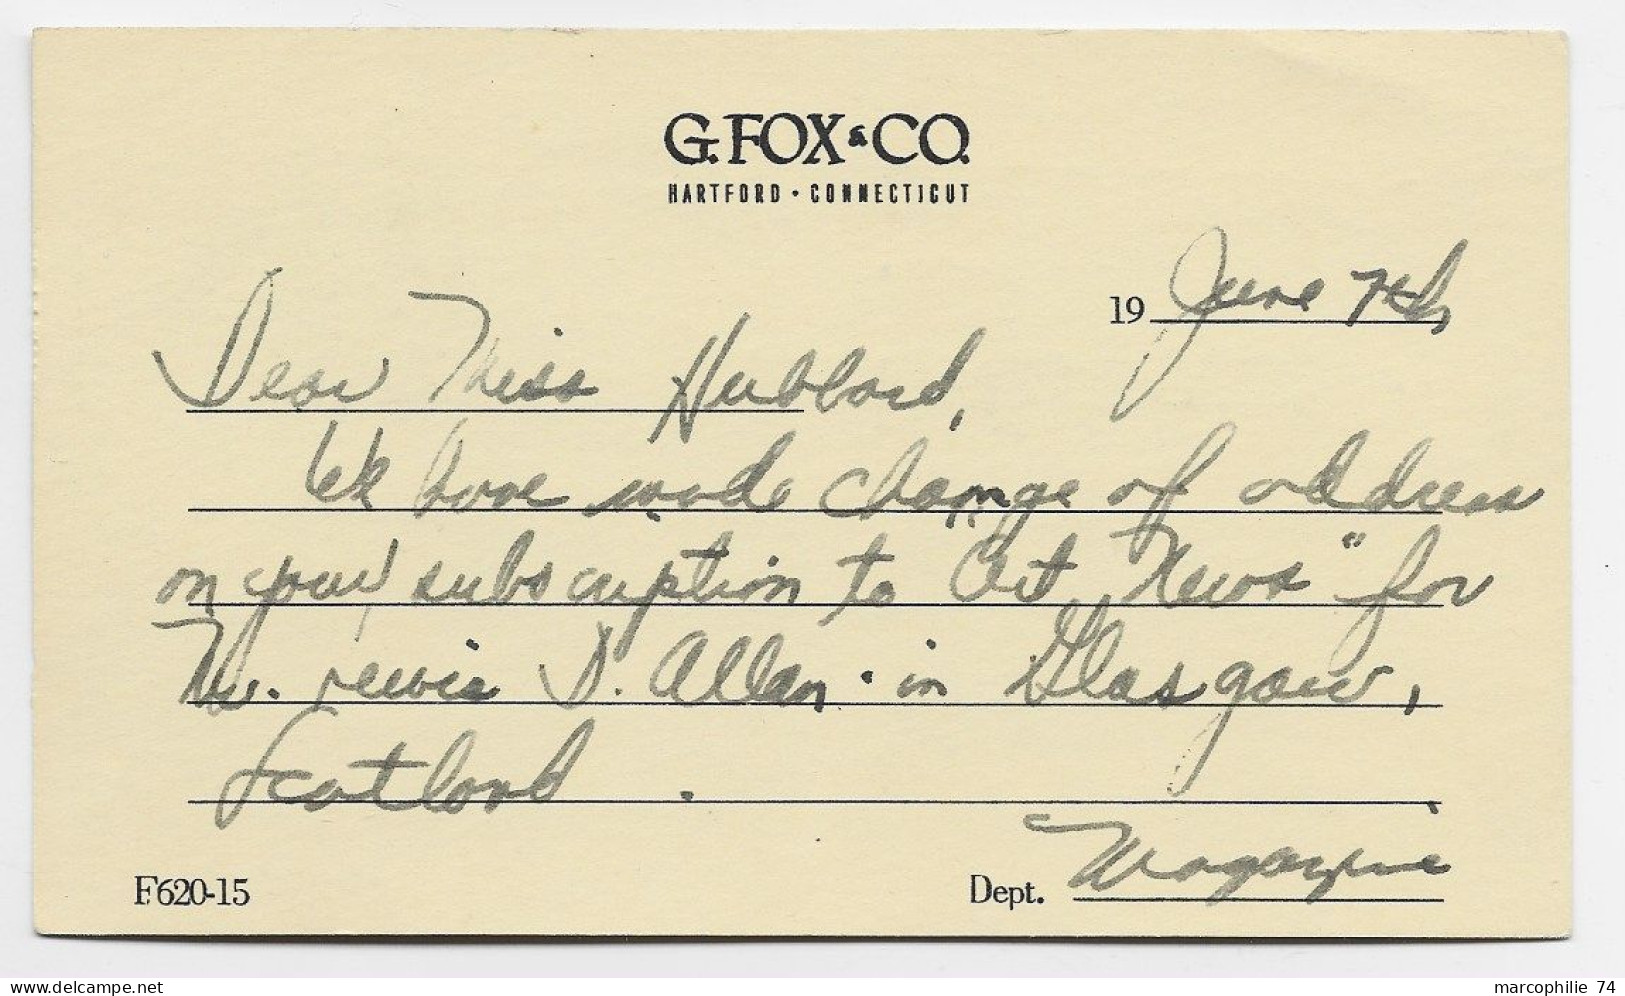 G. FOX & CO.
HARTFORD · CONNECTICUT
19 June 7th,
Dear Miss Hubbard,
We have made change of address
on your subscription to "Art News" for
Mr. Lewis D. Allan - in Glasgow,
Scotland.
F.620-15
Dept. Magazine
www.delcampe.net
marcophilie 74